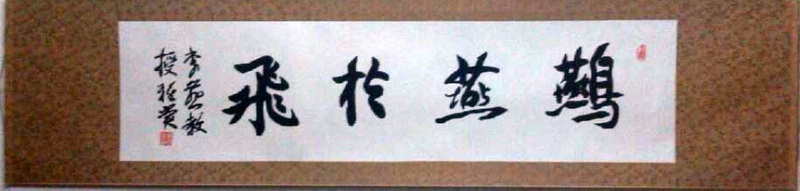 鶼燕於飛
李燕教
授雅賞